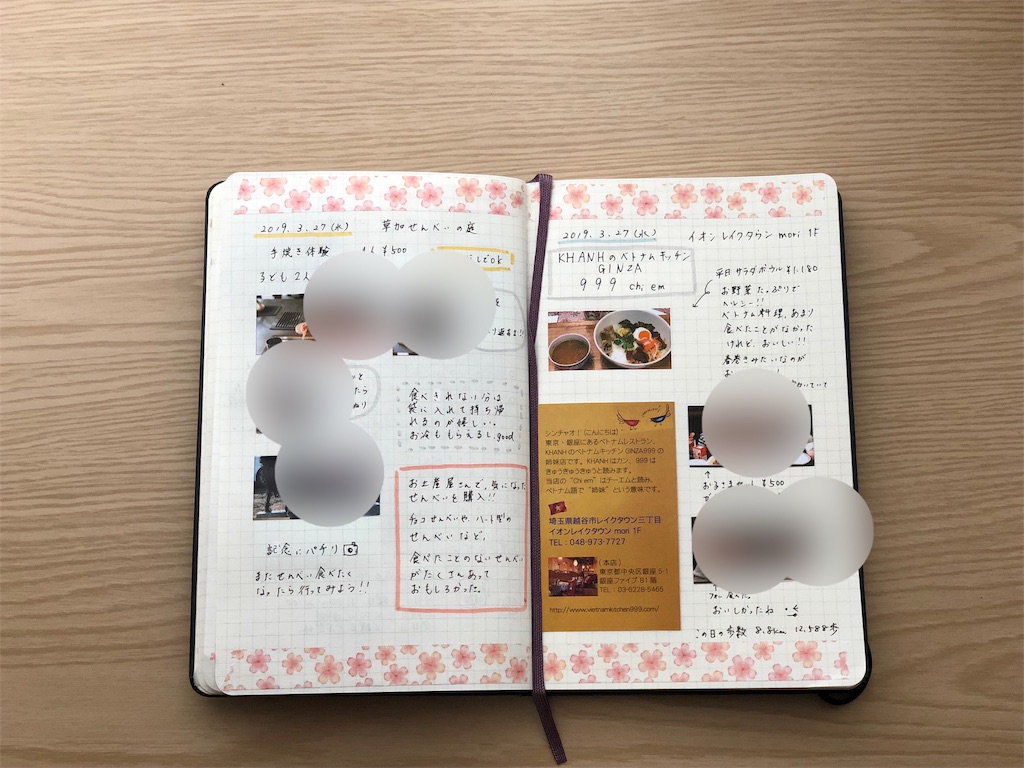 2019.3.27(水) 草加せんべいの庭
手焼き体験 1人 ¥500
子ども 2人
OK
食べきれない分は
袋に入れて持ち帰
れるのが嬉しい。
お冷ももらえるし、good
お土産屋さんで、気になった
せんべいを購入!!
チョコせんべいや、ハート型の
せんべいなど、
食べたことのないせんべい
がたくさんあって
おもしろかった。
記念にパチリ
またせんべい食べたく
なったら行ってみよう!!
2019.3.27(水) イオンレイクタウン mori 1F
KHANHのベトナムキッチン
GINZA
999 chi em
平日 サラダボウル ¥1.180
お野菜たっぷりで
ヘルシー!!
ベトナム料理、あまり
食べたことがなかった
けれど、おいしい!!
春巻きみたいなのが
シンチャオ!(こんにちは)
東京・銀座にあるベトナムレストラン、
KHANHのベトナムキッチンGINZA999の
姉妹店です。KHANHはカン、999は
きゅうきゅうきゅうと読みます。
当店の“Chi em”はチーエムと読み、
ベトナム語で“姉妹”という意味です。
埼玉県越谷市レイクタウン三丁目
イオンレイクタウン mori 1F
TEL:048-973-7727
(本店)
東京都中央区銀座 5-1
銀座ファイブ B1階
TEL:03-6228-5465
http://www.vietnamkitchen999.com/
おいしかったね
この日の歩数 8.8km 12.588歩